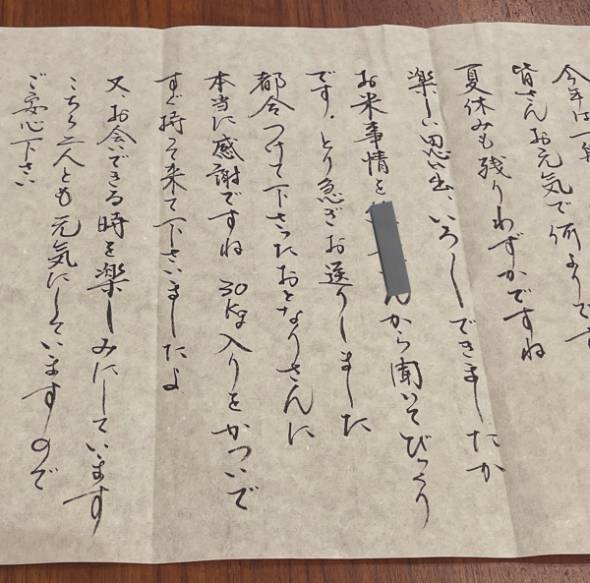 今年は一年
皆さんお元気で何よりです
夏休みも残りわずかですね
楽しい思い出、いろいろできましたか
お米事情を
んから聞いてびっくり
です。とり急ぎお送りしました
都合つけて下さったおとなりさんに
本当に感謝ですね 30kg入りをかついで
すぐ持って来て下さいましたよ
又、お会いできる時を楽しみにしています
こちら二人とも元気にしていますので
ご安心下さい